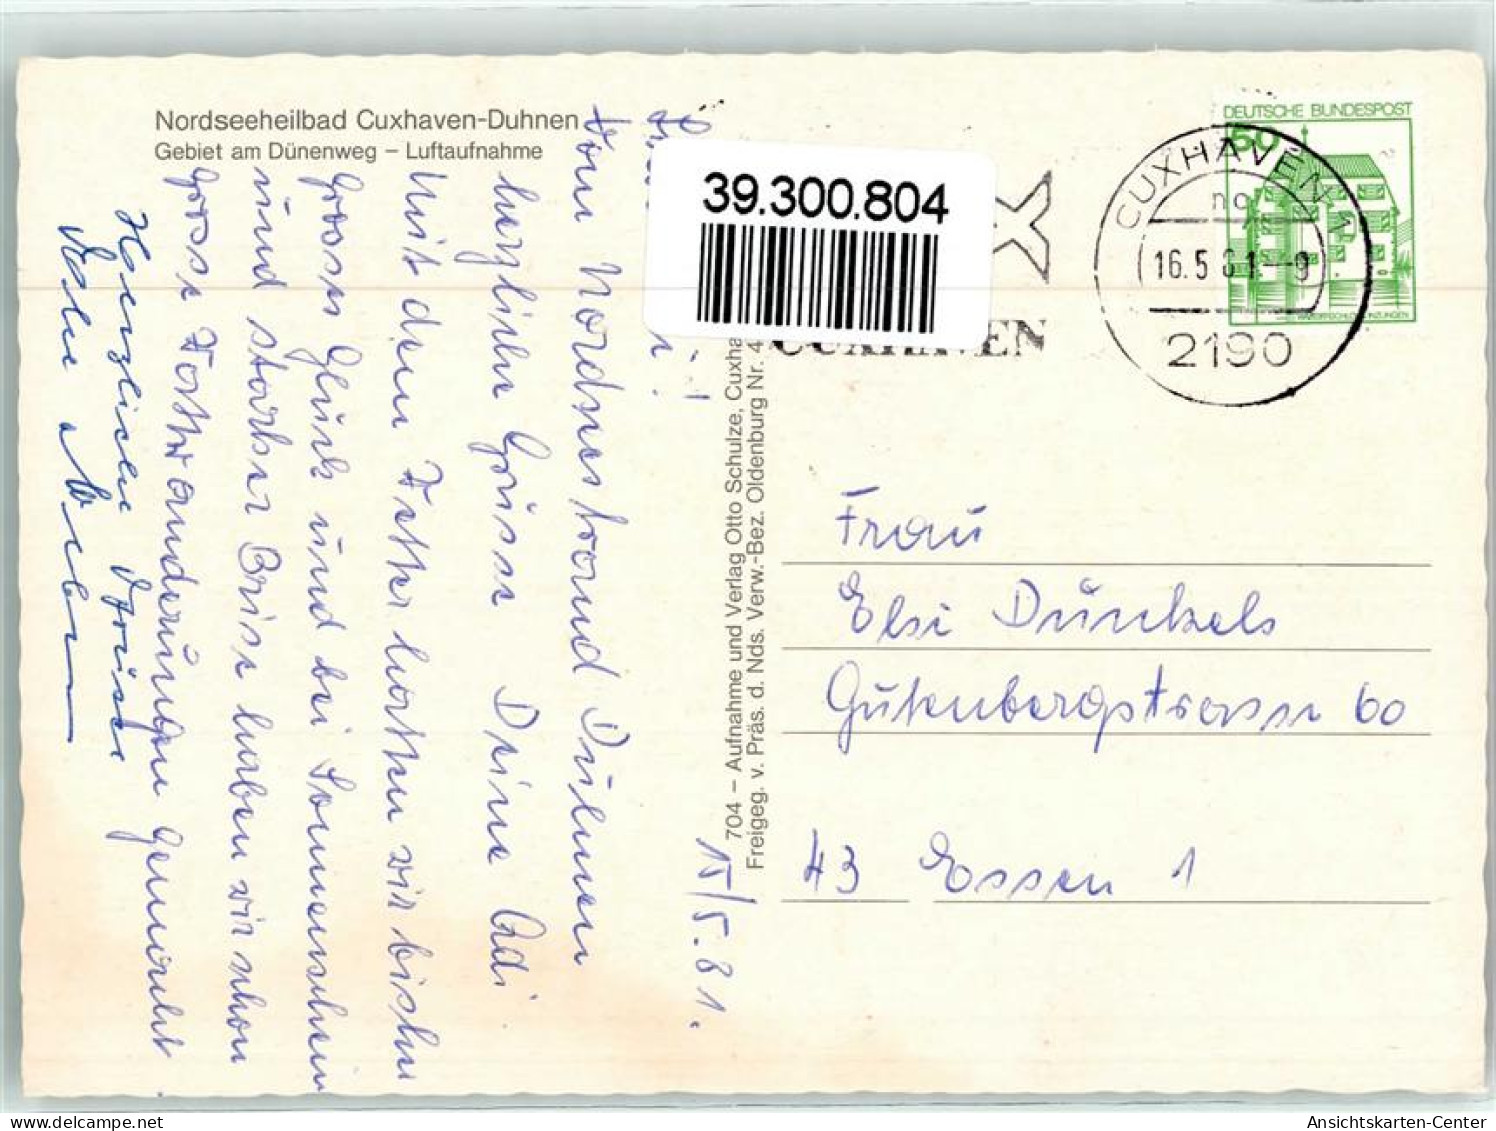 Nordseeheilbad Cuxhaven-Duhnen
Gebiet am Dünenweg – Luftaufnahme
i!
Vom Nordseestrand Duhnen
herzliche Grüsse Deine Adi
Mit dem Wetter hatten wir bisher
grosses Glück und bei Sonnenschein
und starker Brise haben wir schon
grosse Wattwanderungen gemacht
Herzliche Grüsse
15/5.81.
704 – Aufnahme und Verlag Otto Schulze, Cuxha
Freigeg. v. Präs. d. Nds. Verw.-Bez. Oldenburg Nr. 4
39.300.804
CUXHAVEN
DEUTSCHE BUNDESPOST
50
CUXHAVEN
16.5.81-9
2190
Frau
Elsi Dünkels
Gutenbergstrasse 60
43 Essen 1
Ansichtskarten-Center